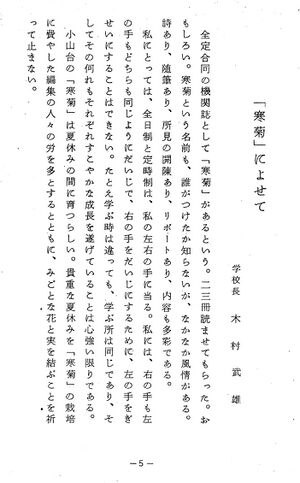 「寒菊」によせて
学校長　木村武雄
全定合同の機関誌として「寒菊」があるという。二三冊読ませてもらった。お
もしろい。寒菊という名前も、誰がつけたか知らないが、なかなか風情がある。
詩あり、随筆あり、所見の開陳あり、リポートあり、内容も多彩である。
私にとっては、全日制と定時制は、私の左右の手に当る。私には、右の手も左
の手もどちらも同じようにだいじで、右の手をだいじにするために、左の手をぎ
せいにすることはできない。たとえ学ぶ時は違っても、学ぶ所は同じであり、そ
してその何れもそれぞれすこやかな成長を遂げていることは心強い限りである。
小山台の「寒菊」は夏休みの間に育つらしい。貴重な夏休みを「寒菊」の栽培
に費やした編集の人々の労を多とするとともに、みごとな花と実を結ぶことを祈
って止まない。
—5—